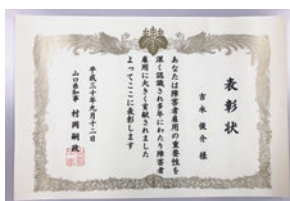 表彰状
吉永俊介 様
あなたは障害者雇用の重要性を
深く認識され多年にわたり障害者
雇用に大きく貢献されました
よってここに表彰します
平成三十年九月十二日
山口県知事 村岡嗣政